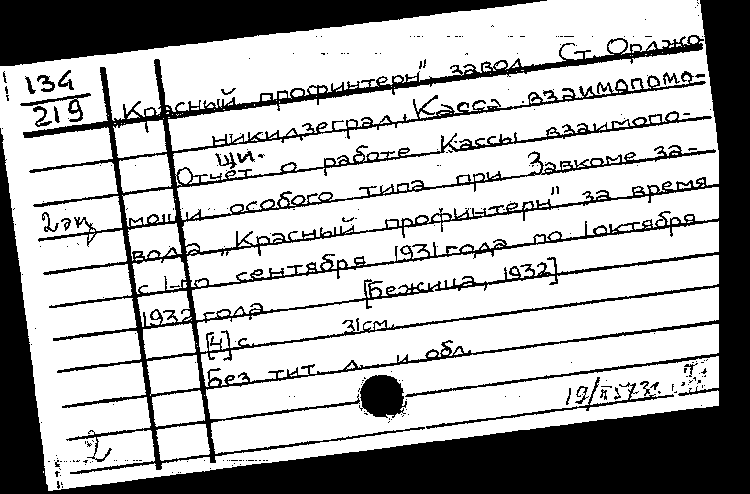 134
219
„Красный профинтерн", завод. Ст. Орджо-
никидзеград. Касса взаимопомо-
щи.
Отчёт о работе Кассы взаимопо-
2 экз
мощи особого типа при Завкоме за-
вода „Красный профинтерн" за время
с 1-го сентября 1931 года по 1 октября
1932 года. [Бежица, 1932]
[4] с. 31 см.
Без тит. л. и обл.
2